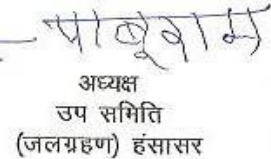 पाबूराम
अध्यक्ष
उप समिति
(जलग्रहण) हंसासर